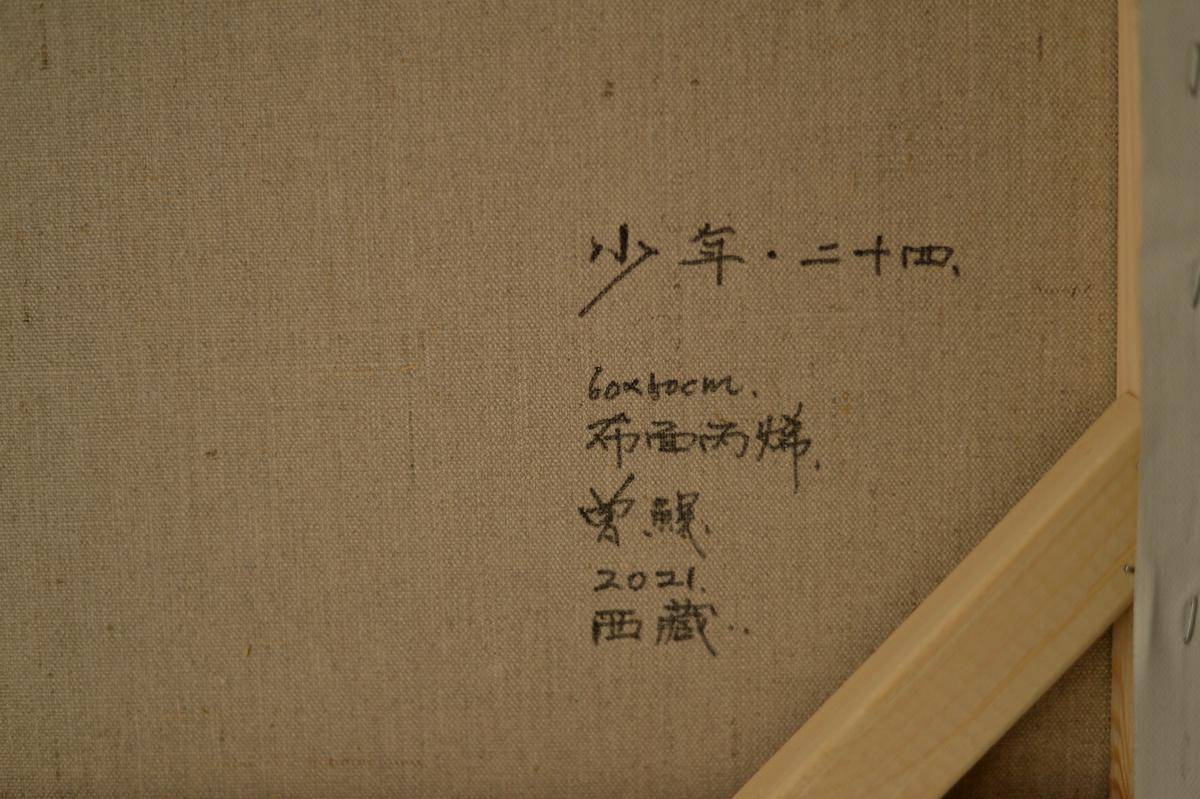 少年·二十四.
60x80cm.
布面丙烯.
曾
2021.
西藏..